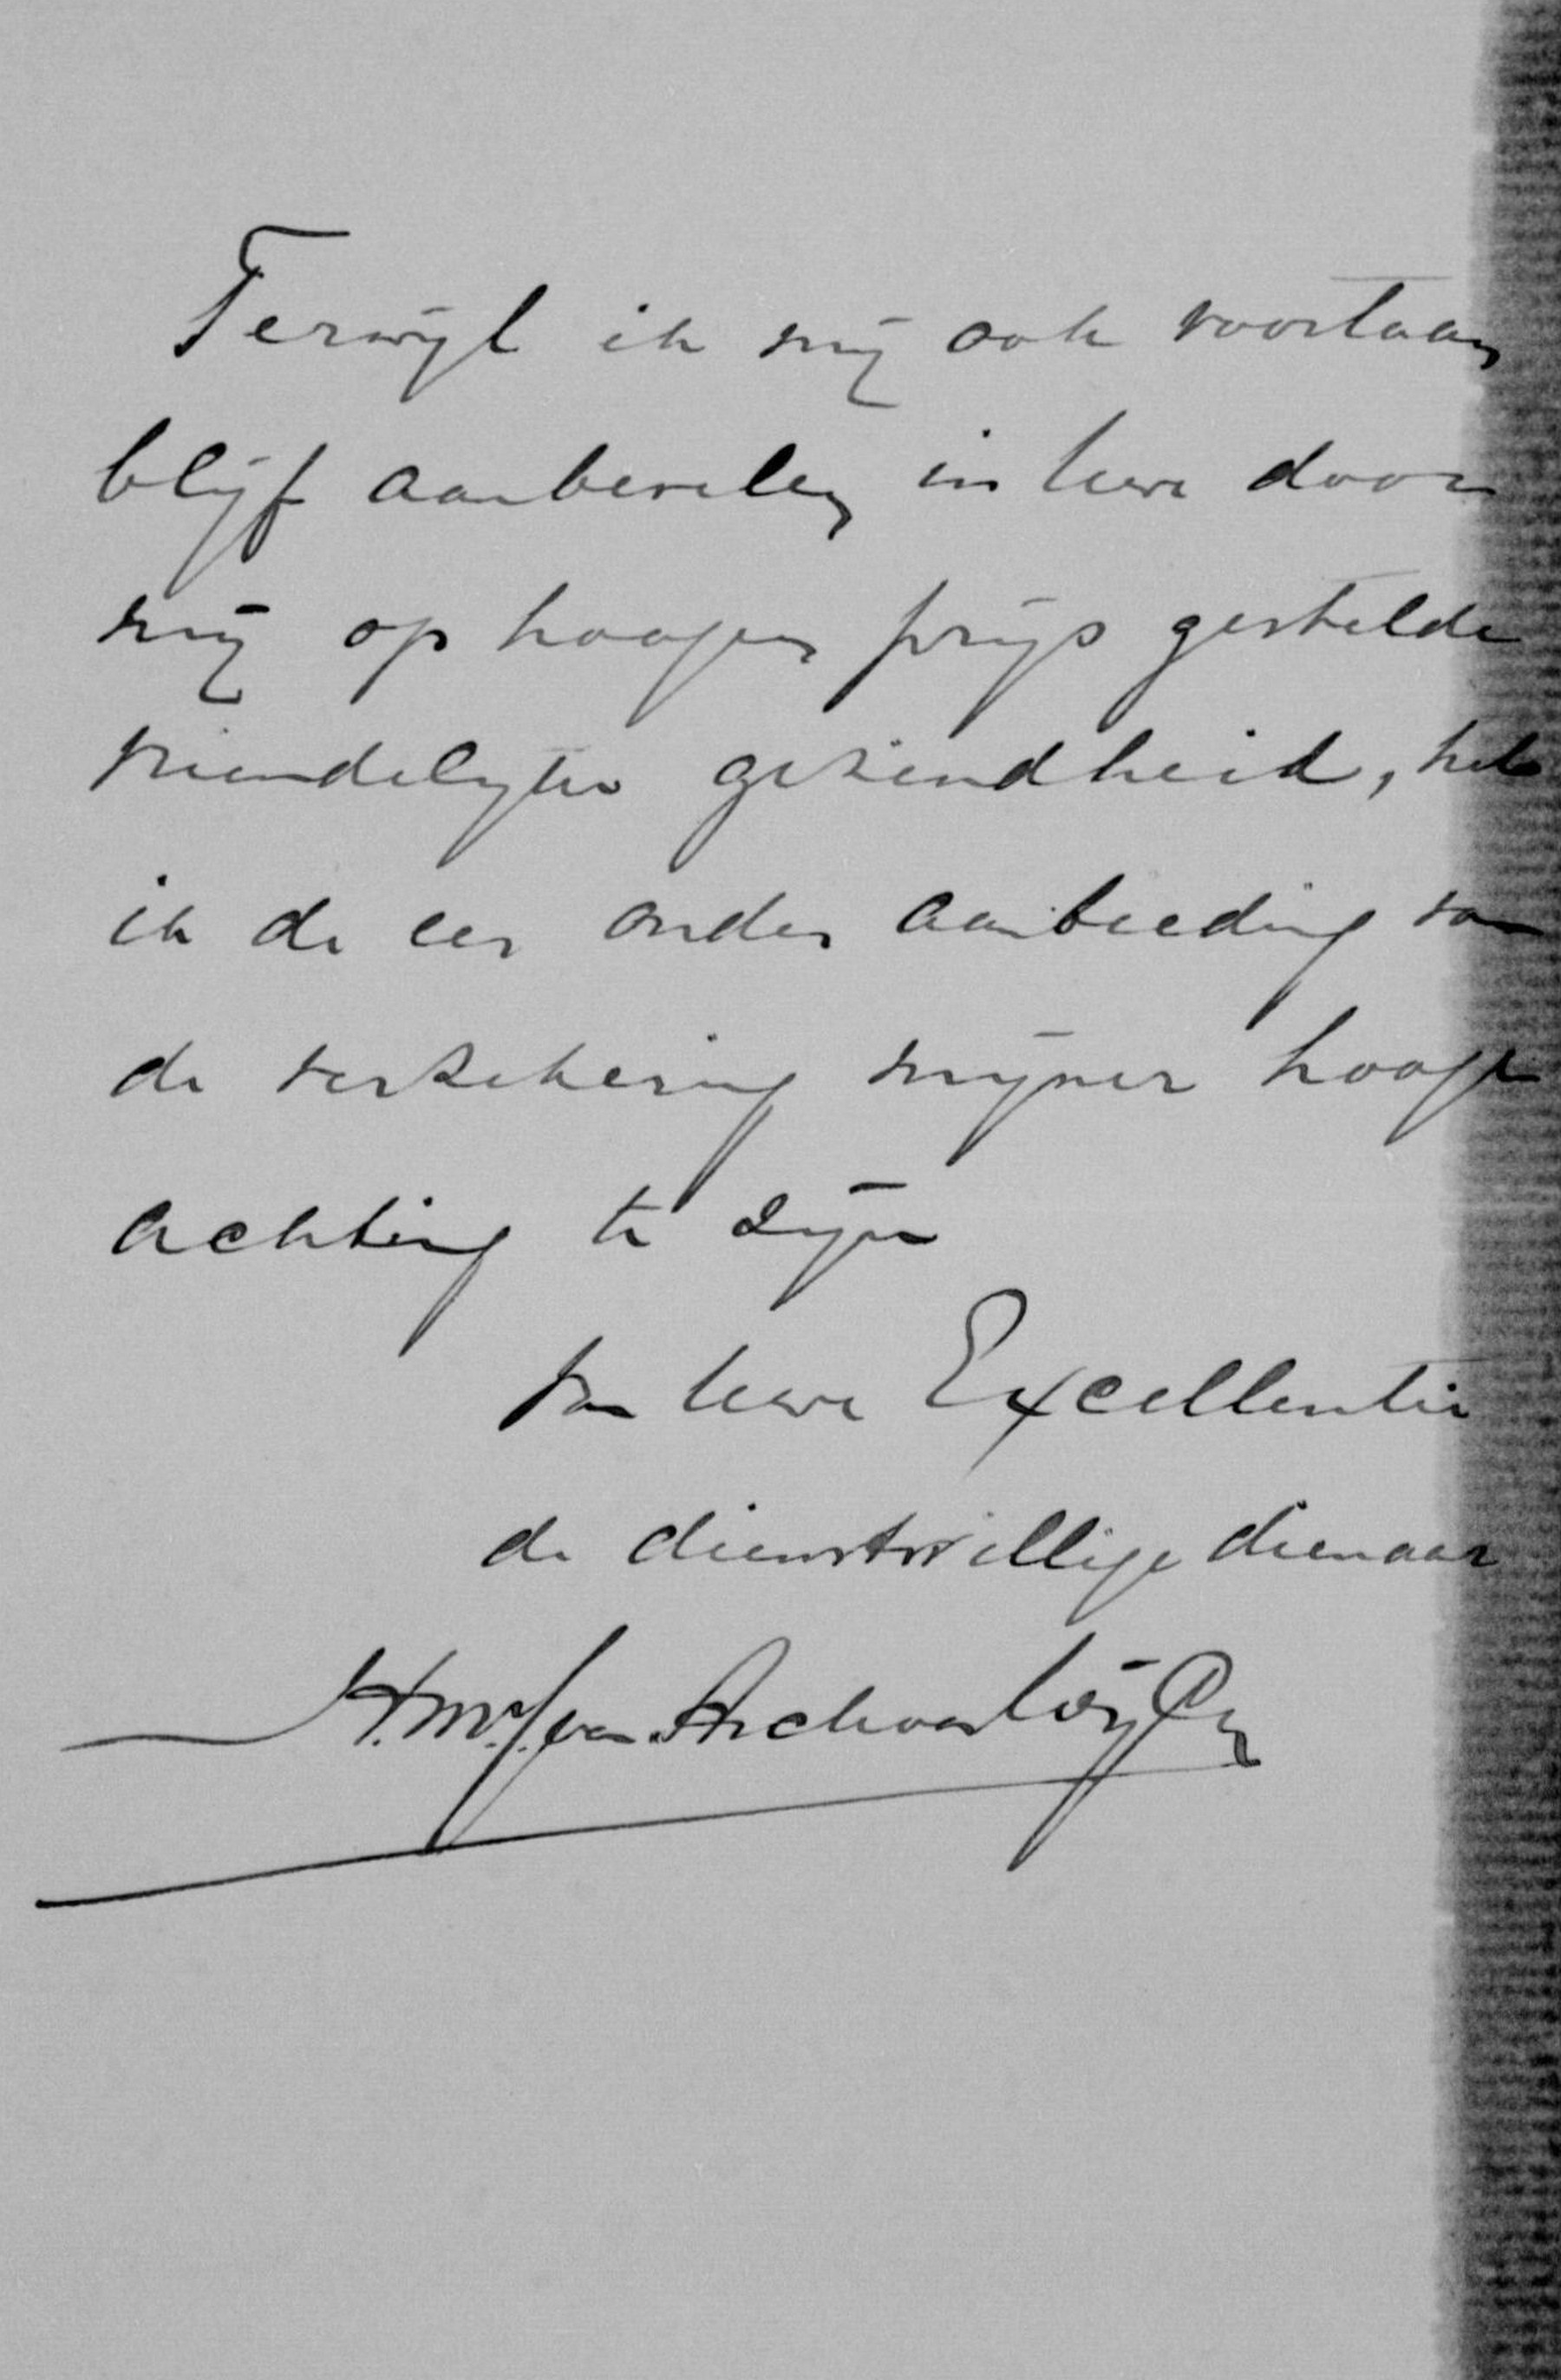 Terwijl ik mij ook voortaan
blijf aanbevelen in Uwe door
mij op hoogen prijs gestelde
vriendelijke gezindheid, heb
ik de eer onder aanbieding van
de verzekering mijner hoog
achting te zijn
Van Uwe Excellentie
de dienstwillige dienaar
H.M.J. van Asch van Wijck